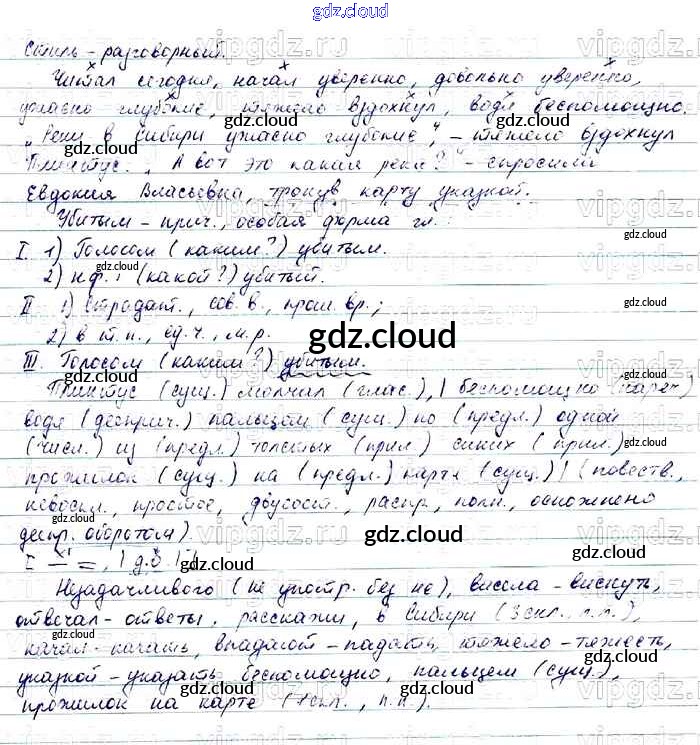 gdz.cloud
Стиль – разговорный.
Читал сегодня, начал уверенно, довольно уверенно,
ужасно глубокие, тяжело вздохнул, водя беспомощно.
„Реки в Сибири ужасно глубокие", – тяжело вздохнул
Плинтус. „А вот это какая река?" – спросила
Евдокия Власьевна, тронув карту указкой.
Убитым – прич., особая форма гл.:
I. 1) Голосом (каким?) убитым.
2) н.ф.: (какой?) убитый.
II 1) Страдат., сов. в., прош. вр.;
2) в т.п., ед.ч., м.р.
III. Голосом (каким?) убитым.
Плинтус (сущ.) молчал (глаг.), | беспомощно (нареч.)
водя (дееприч.) пальцем (сущ.) по (предл.) одной
(числ.) из (предл.) толстых (прил.) синих (прил.)
прожилок (сущ.) на (предл.) карте (сущ.) | (повеств.,
невоскл., простое, двусост., распр., полн., осложнено
деепр. оборотом).
I – =, | д.о. |
Незадачливого (не употр. без не), висела – виснуть,
отвечал – ответы, расскажи, в Сибири (3 скл., п.п.),
начал – начать, впадают – падать, тяжело – тяжесть,
указкой – указать, беспомощно, пальцем (сущ.),
прожилок на карте (1 скл., п.п.).